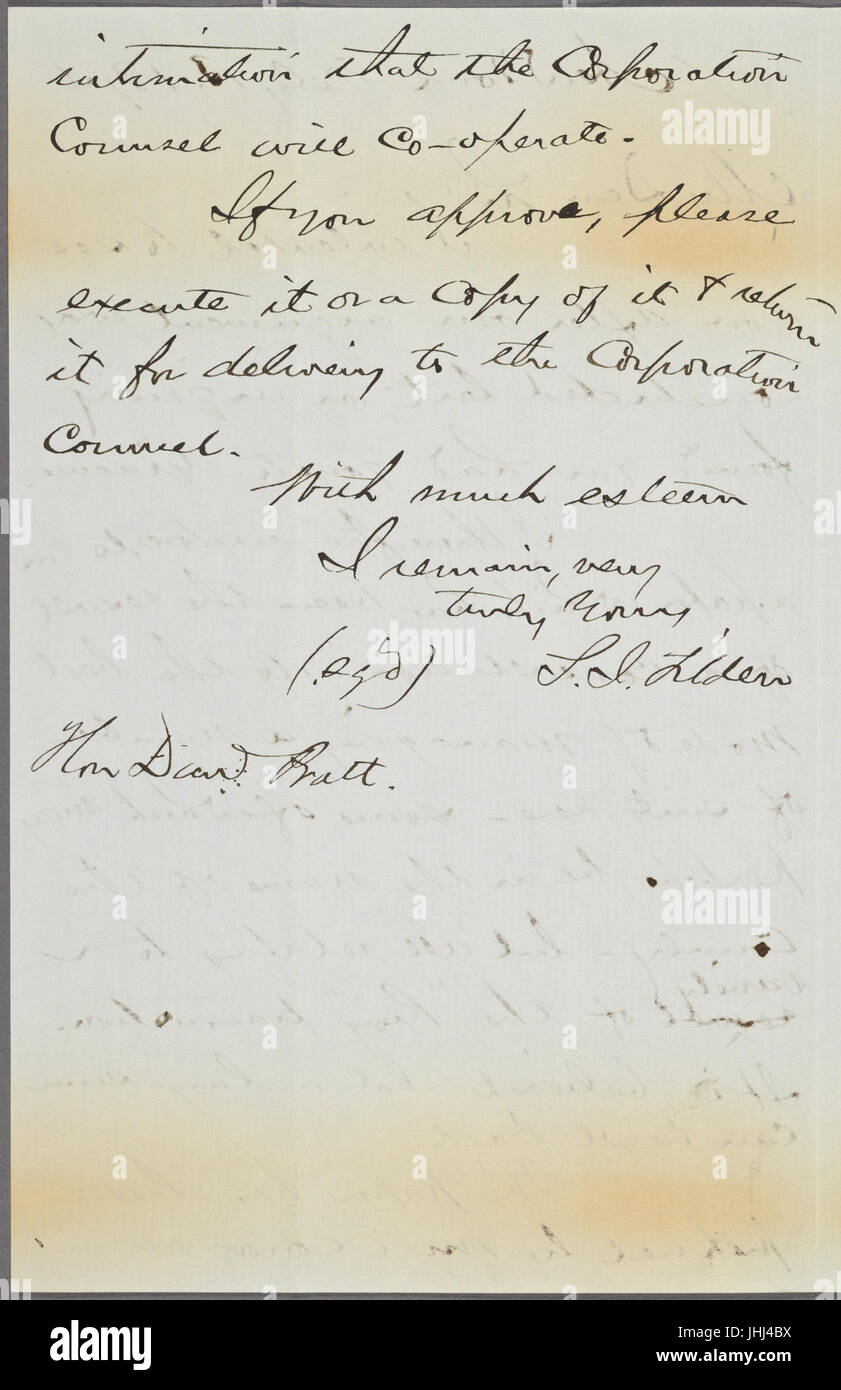 intimation that the Corporation
Counsel will Co-operate.
If you approve, please
execute it or a Copy of it & return
it for delivery to the Corporation
Counsel.
With much esteem
I remain, very
truly Yours
(sig'd) S. J. Tilden
Hon Dan'l Pratt.
alamy
Image ID: JHJ4BX
www.alamy.com